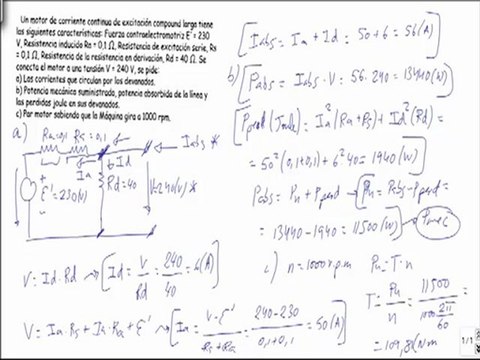 Un motor de corriente continua de excitación compound larga tiene
las siguientes características: Fuerza contraelectromotriz E' = 230
V, Resistencia inducido Ra = 0,1 Ω, Resistencia de excitación serie, Rs
= 0,1 Ω, Resistencia de la resistencia en derivación, Rd = 40 Ω. Se
conecta el motor a una tensión V = 240 V, se pide:
a) Las corrientes que circulan por los devanados.
b) Potencia mecánica suministrada, potencia absorbida de la línea y
las perdidas joule en sus devanados.
c) Par motor sabiendo que la Máquina gira a 1000 rpm.
a)
Ra=0,1 Rs=0,1
Iabs *
Ia
Id
Rd=40
E'=230(V)
V=240(V) *
V = Id · Rd → [Id = V/Rd = 240/40 = 6(A)
V = Ia · Rs + Ia · Ra + E' [Ia = (V - E')/(Rs + Ra) = (240 - 230)/(0,1+0,1) = 50(A)]
[Iabs = Ia + Id = 50 + 6 = 56(A)]
b) [Pabs = Iabs · V = 56 · 240 = 13440(W)]
[Pperd (Joule) = Ia²(Ra+Rs) + Id²(Rd) =
= 50²(0,1+0,1) + 6²·40 = 1940(W)]
Pabs = Pu + Pperd → [Pu = Pabs - Pperd =
= 13440 - 1940 = 11500(W)] Pmec
c) n = 1000 r.p.m Pu = T · n
T = Pu/n = 11500/(1000 2π/60)
= 109,8(N·m
1/1